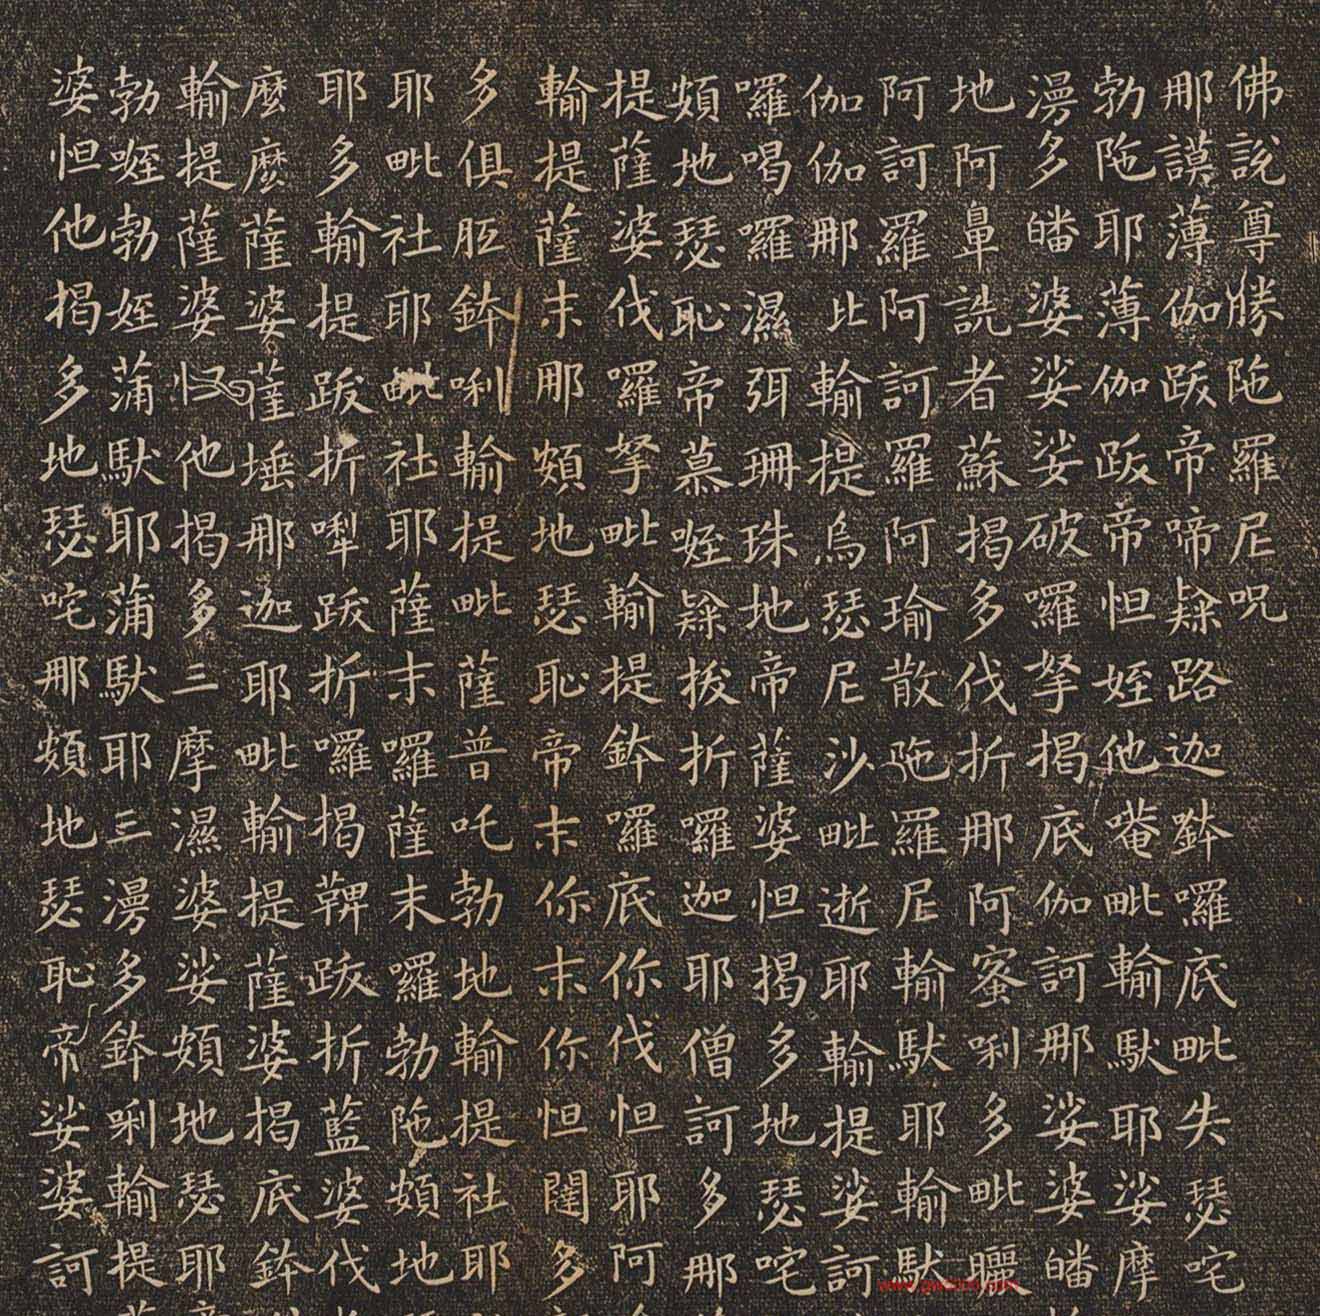 佛說尊勝陁羅尼呪
那謨薄伽跋帝啼隸路迦鉢囉底毗失瑟咤
勃陁耶薄伽跋帝怛姪他唵毗輸馱耶娑摩
漫多皤婆娑娑破羅拏揭底伽訶那娑婆皤
地阿鼻詵者蘇揭多伐折那阿蜜唎多毗曬
阿訶羅阿訶羅阿瑜散陁羅尼輸馱耶輸馱
伽伽那比輸提烏瑟尼沙毗逝耶輸提娑訶
囉喝囉濕弭珊珠地帝薩婆怛揭多地瑟咤
頞地瑟恥帝慕㗌隸拔折囉迦耶僧訶多那
提薩婆伐羅拏毗輸提鉢囉底你伐怛耶阿
輸提薩末那頞地瑟恥帝末你末你怛闥多
多俱胝鉢唎輸提毗薩普吒勃地輸提社耶
耶毗社耶毗社耶薩末囉薩末囉勃陁頞地
耶多輸提跋折㘑跋折囉揭鞞跋折藍婆伐
麼麼薩婆薩埵那迦耶毗輸提薩婆揭底鉢
輸提薩婆怛他揭多三摩濕婆娑頞地瑟耶
勃㗌勃姪蒲馱耶蒲馱耶三漫多鉢唎輸提
婆怛他揭多地瑟咤那頞地瑟恥帝娑婆訶